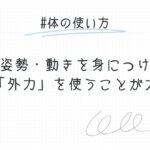 #体の使い方
姿勢・動きを身につけ
「外力」を使うことが